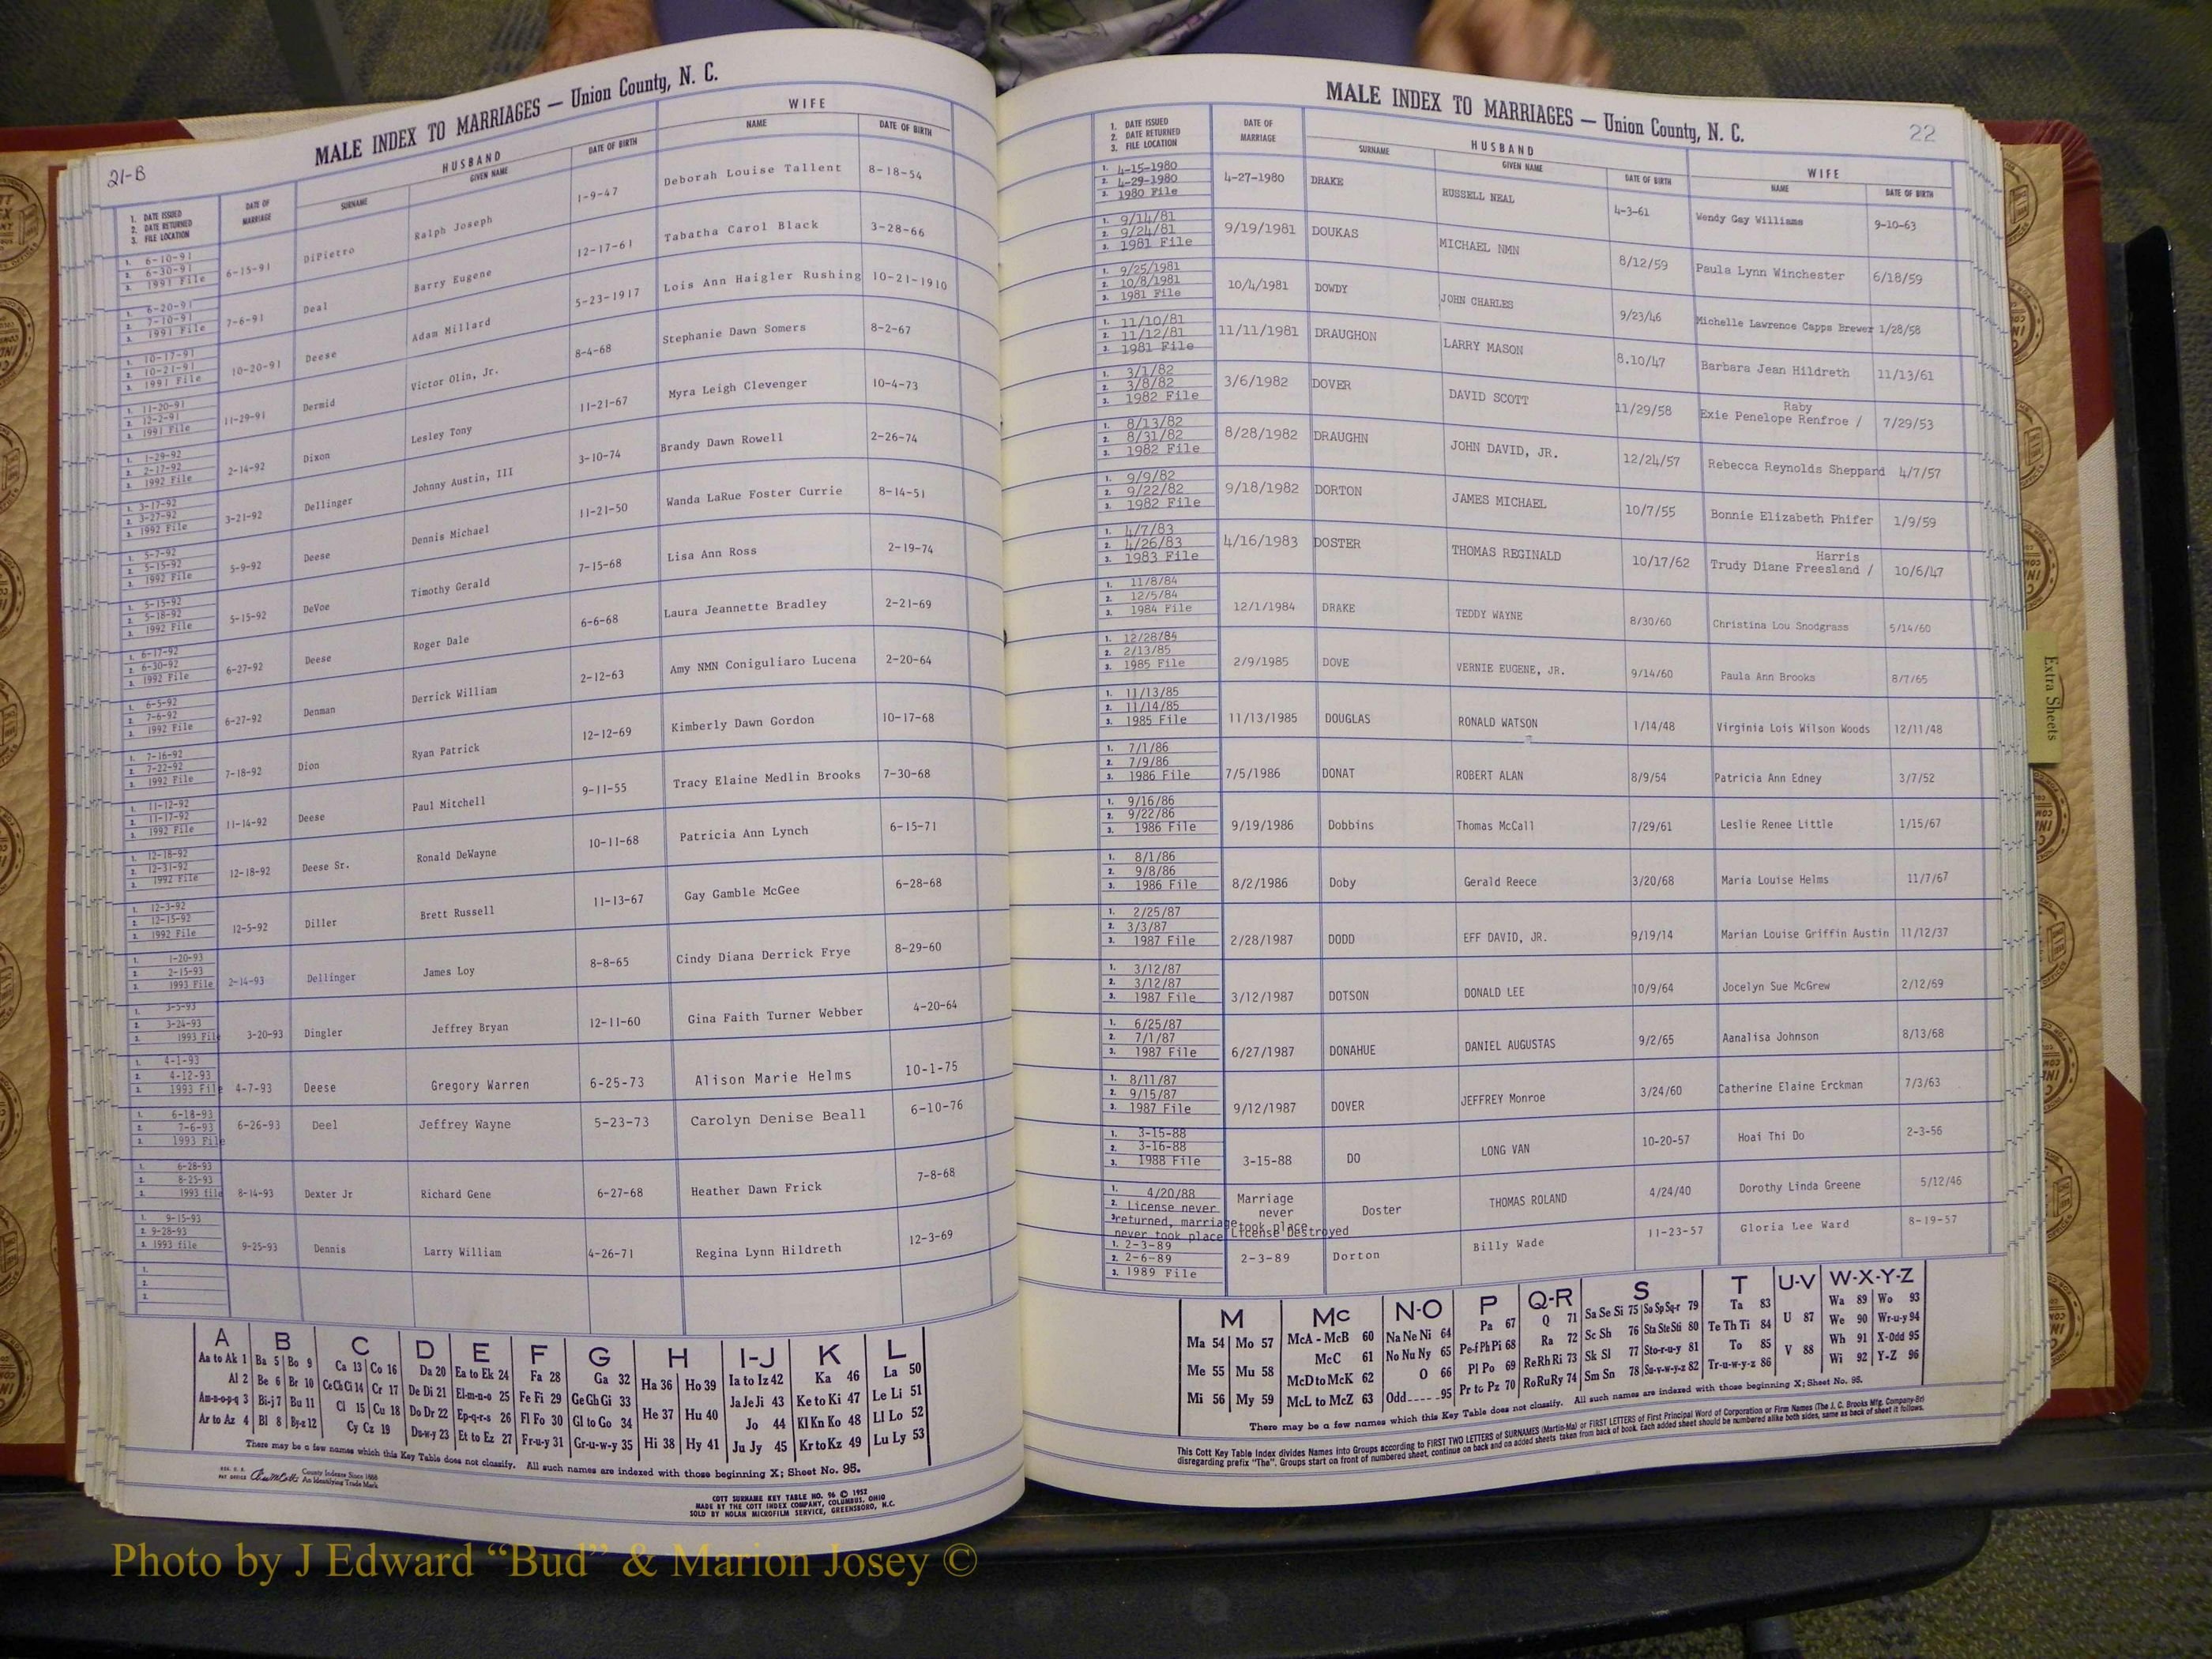 21-B
MALE INDEX TO MARRIAGES — Union County, N. C.
HUSBAND WIFE
1. DATE ISSUED
2. DATE RETURNED
3. FILE LOCATION
DATE OF MARRIAGE SURNAME GIVEN NAME DATE OF BIRTH NAME DATE OF BIRTH
1. 6-10-91
2. 6-30-91
3. 1991 File
6-15-91 DiPietro Ralph Joseph 1-9-47 Deborah Louise Tallent 8-18-54
1. 6-20-91
2. 7-10-91
3. 1991 File
7-6-91 Deal Barry Eugene 12-17-61 Tabatha Carol Black 3-28-66
1. 10-17-91
2. 10-21-91
3. 1991 File
10-20-91 Deese Adam Millard 5-23-1917 Lois Ann Haigler Rushing 10-21-1910
1. 11-20-91
2. 12-2-91
3. 1991 File
11-29-91 Dermid Victor Olin, Jr. 8-4-68 Stephanie Dawn Somers 8-2-67
1. 1-29-92
2. 2-17-92
3. 1992 File
2-14-92 Dixon Lesley Tony 11-21-67 Myra Leigh Clevenger 10-4-73
1. 3-17-92
2. 3-27-92
3. 1992 File
3-21-92 Dellinger Johnny Austin, III 3-10-74 Brandy Dawn Rowell 2-26-74
1. 5-7-92
2. 5-15-92
3. 1992 File
5-9-92 Deese Dennis Michael 11-21-50 Wanda LaRue Foster Currie 8-14-51
1. 5-15-92
2. 5-18-92
3. 1992 File
5-15-92 DeVoe Timothy Gerald 7-15-68 Lisa Ann Ross 2-19-74
1. 6-17-92
2. 6-30-92
3. 1992 File
6-27-92 Deese Roger Dale 6-6-68 Laura Jeannette Bradley 2-21-69
1. 6-5-92
2. 7-6-92
3. 1992 File
6-27-92 Denman Derrick William 2-12-63 Amy NMN Coniguliaro Lucena 2-20-64
1. 7-16-92
2. 7-22-92
3. 1992 File
7-18-92 Dion Ryan Patrick 12-12-69 Kimberly Dawn Gordon 10-17-68
1. 11-12-92
2. 11-17-92
3. 1992 File
11-14-92 Deese Paul Mitchell 9-11-55 Tracy Elaine Medlin Brooks 7-30-68
1. 12-18-92
2. 12-31-92
3. 1992 File
12-18-92 Deese Sr. Ronald DeWayne 10-11-68 Patricia Ann Lynch 6-15-71
1. 12-3-92
2. 12-15-92
3. 1992 File
12-5-92 Diller Brett Russell 11-13-67 Gay Gamble McGee 6-28-68
1. 1-20-93
2. 2-15-93
3. 1993 File
2-14-93 Dellinger James Loy 8-8-65 Cindy Diana Derrick Frye 8-29-60
1. 3-5-93
2. 3-24-93
3. 1993 File
3-20-93 Dingler Jeffrey Bryan 12-11-60 Gina Faith Turner Webber 4-20-64
1. 4-1-93
2. 4-12-93
3. 1993 File
4-7-93 Deese Gregory Warren 6-25-73 Alison Marie Helms 10-1-75
1. 6-18-93
2. 7-6-93
3. 1993 File
6-26-93 Deel Jeffrey Wayne 5-23-73 Carolyn Denise Beall 6-10-76
1. 6-28-93
2. 8-25-93
3. 1993 file
8-14-93 Dexter Jr Richard Gene 6-27-68 Heather Dawn Frick 7-8-68
1. 9-15-93
2. 9-28-93
3. 1993 file
9-25-93 Dennis Larry William 4-26-71 Regina Lynn Hildreth 12-3-69
1.
2.
3.
A B C D E F G H I-J K L
Aa to Ak 1 Ba 5 Bo 9 Ca 13 Co 16 Da 20 Ea to Ek 24 Fa 28 Ga 32 Ha 36 Ho 39 Ia to Iz 42 Ka 46 La 50
Al 2 Be 6 Br 10 Ce Ch Ci 14 Cr 17 De Di 21 El-m-n-o 25 Fe Fi 29 Ge Gh Gi 33 He 37 Hu 40 Ja Je Ji 43 Ke to Ki 47 Le Li 51
Am-n-o-p-q 3 Bi-j 7 Bu 11 Cl 15 Cu 18 Do Dr 22 Ep-q-r-s 26 Fl Fo 30 Gl to Go 34 Jo 44 Kl Kn Ko 48 Ll Lo 52
Ar to Az 4 Bl 8 By-z 12 Cy Cz 19 Du-w-y 23 Et to Ez 27 Fr-u-y 31 Gr-u-w-y 35 Hi 38 Hy 41 Ju Jy 45 Kr to Kz 49 Lu Ly 53
There may be a few names which this Key Table does not classify. All such names are indexed with those beginning X; Sheet No. 95.
County Indexes Since 1888
An Identifying Trade Mark
COTT SURNAME KEY TABLE NO. 96 © 1952
MADE BY THE COTT INDEX COMPANY, COLUMBUS, OHIO
SOLD BY NOLAN MICROFILM SERVICE, GREENSBORO, N.C.
MALE INDEX TO MARRIAGES — Union County, N. C.
22
HUSBAND WIFE
1. DATE ISSUED
2. DATE RETURNED
3. FILE LOCATION
DATE OF MARRIAGE SURNAME GIVEN NAME DATE OF BIRTH NAME DATE OF BIRTH
1. 4-15-1980
2. 4-29-1980
3. 1980 File
4-27-1980 DRAKE RUSSELL NEAL 4-3-61 Wendy Gay Williams 9-10-63
1. 9/14/81
2. 9/24/81
3. 1981 File
9/19/1981 DOUKAS MICHAEL NMN 8/12/59 Paula Lynn Winchester 6/18/59
1. 9/25/1981
2. 10/8/1981
3. 1981 File
10/4/1981 DOWDY JOHN CHARLES 9/23/46 Michelle Lawrence Capps Brewer 1/28/58
1. 11/10/81
2. 11/12/81
3. 1981 File
11/11/1981 DRAUGHON LARRY MASON 8.10/47 Barbara Jean Hildreth 11/13/61
1. 3/1/82
2. 3/8/82
3. 1982 File
3/6/1982 DOVER DAVID SCOTT 11/29/58 Exie Penelope Renfroe / Raby 7/29/53
1. 8/13/82
2. 8/31/82
3. 1982 File
8/28/1982 DRAUGHN JOHN DAVID, JR. 12/24/57 Rebecca Reynolds Sheppard 4/7/57
1. 9/9/82
2. 9/22/82
3. 1982 File
9/18/1982 DORTON JAMES MICHAEL 10/7/55 Bonnie Elizabeth Phifer 1/9/59
1. 4/7/83
2. 4/26/83
3. 1983 File
4/16/1983 DOSTER THOMAS REGINALD 10/17/62 Trudy Diane Freesland / Harris 10/6/47
1. 11/8/84
2. 12/5/84
3. 1984 File
12/1/1984 DRAKE TEDDY WAYNE 8/30/60 Christina Lou Snodgrass 5/14/60
1. 12/28/84
2. 2/13/85
3. 1985 File
2/9/1985 DOVE VERNIE EUGENE, JR. 9/14/60 Paula Ann Brooks 8/7/65
1. 11/13/85
2. 11/14/85
3. 1985 File
11/13/1985 DOUGLAS RONALD WATSON 1/14/48 Virginia Lois Wilson Woods 12/11/48
1. 7/1/86
2. 7/9/86
3. 1986 File
7/5/1986 DONAT ROBERT ALAN 8/9/54 Patricia Ann Edney 3/7/52
1. 9/16/86
2. 9/22/86
3. 1986 File
9/19/1986 Dobbins Thomas McCall 7/29/61 Leslie Renee Little 1/15/67
1. 8/1/86
2. 9/8/86
3. 1986 File
8/2/1986 Doby Gerald Reece 3/20/68 Maria Louise Helms 11/7/67
1. 2/25/87
2. 3/3/87
3. 1987 File
2/28/1987 DODD EFF DAVID, JR. 9/19/14 Marian Louise Griffin Austin 11/12/37
1. 3/12/87
2. 3/12/87
3. 1987 File
3/12/1987 DOTSON DONALD LEE 10/9/64 Jocelyn Sue McGrew 2/12/69
1. 6/25/87
2. 7/1/87
3. 1987 File
6/27/1987 DONAHUE DANIEL AUGUSTAS 9/2/65 Aanalisa Johnson 8/13/68
1. 8/11/87
2. 9/15/87
3. 1987 File
9/12/1987 DOVER JEFFREY Monroe 3/24/60 Catherine Elaine Erckman 7/3/63
1. 3-15-88
2. 3-16-88
3. 1988 File
3-15-88 DO LONG VAN 10-20-57 Hoai Thi Do 2-3-56
1. 4/20/88
2. License never
3. returned, marriage
never took place
Marriage never took place License Destroyed
Doster THOMAS ROLAND 4/24/40 Dorothy Linda Greene 5/12/46
1. 2-3-89
2. 2-6-89
3. 1989 File
2-3-89 Dorton Billy Wade 11-23-57 Gloria Lee Ward 8-19-57
M Mc N-O P Q-R S T U-V W-X-Y-Z
Ma 54 Mo 57 McA - McB 60 Na Ne Ni 64 Pa 67 Q 71 Sa Se Si 75 So Sp Sq-r 79 Ta 83 U 87 Wa 89 Wo 93
Me 55 Mu 58 McC 61 No Nu Ny 65 Pe-f Ph Pi 68 Ra 72 Sc Sh 76 Sta Ste Sti 80 Te Th Ti 84 We 90 Wr-u-y 94
McD to McK 62 O 66 Pl Po 69 Re Rh Ri 73 Sk Sl 77 Sto-r-u-y 81 To 85 V 88 Wh 91 X-Odd 95
Mi 56 My 59 McL to McZ 63 Odd 95 Pr to Pz 70 Ro Ru Ry 74 Sm Sn 78 Su-v-w-y-z 82 Tr-u-w-y-z 86 Wi 92 Y-Z 96
There may be a few names which this Key Table does not classify. All such names are indexed with those beginning X; Sheet No. 95.
This Cott Key Table Index divides Names into Groups according to FIRST TWO LETTERS of SURNAMES (Martin-Ma) or FIRST LETTERS of First Principal Word of Corporation or Firm Names (The J. C. Brooks Mfg. Company-Br)
disregarding prefix "The". Groups start on front of numbered sheet, continue on back and on added sheets taken from back of book. Each added sheet should be numbered alike both sides, same as back of sheet it follows.
Extra Sheets
Photo by J Edward “Bud” & Marion Josey ©